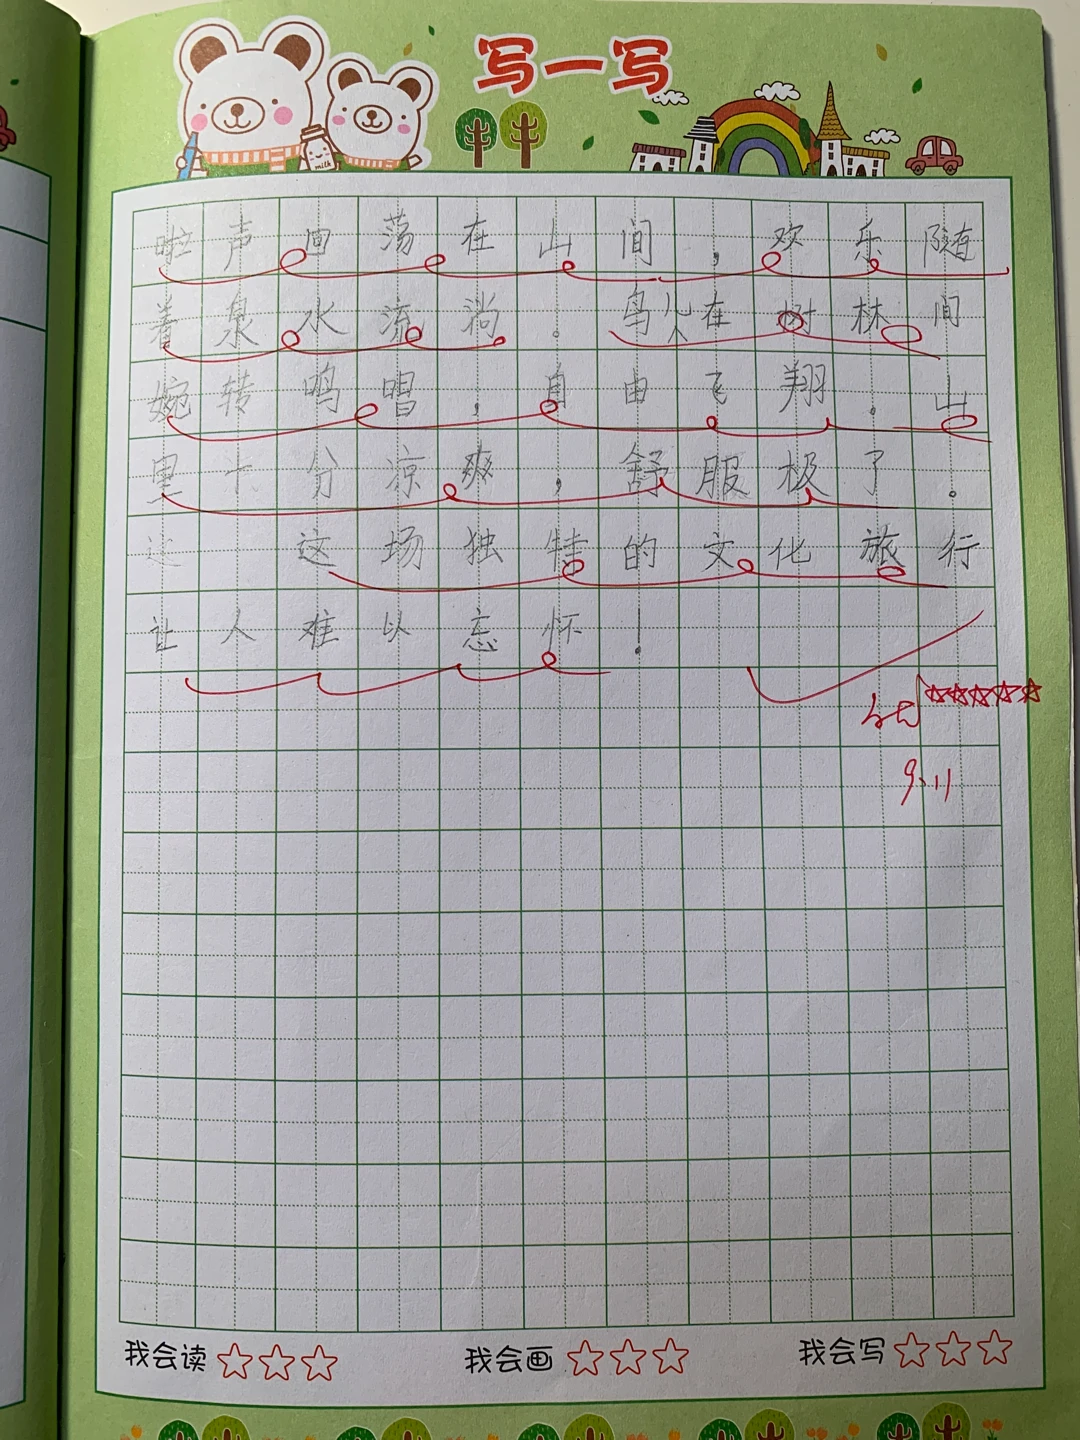 写一写
milk
啦声回荡在山间，欢乐随
着泉水流淌。鸟儿在树林间
婉转鸣唱，自由飞翔。山
里十分凉爽，舒服极了。
这场独特的文化旅行
让人难以忘怀！
优
9.11
我会读 我会画 我会写